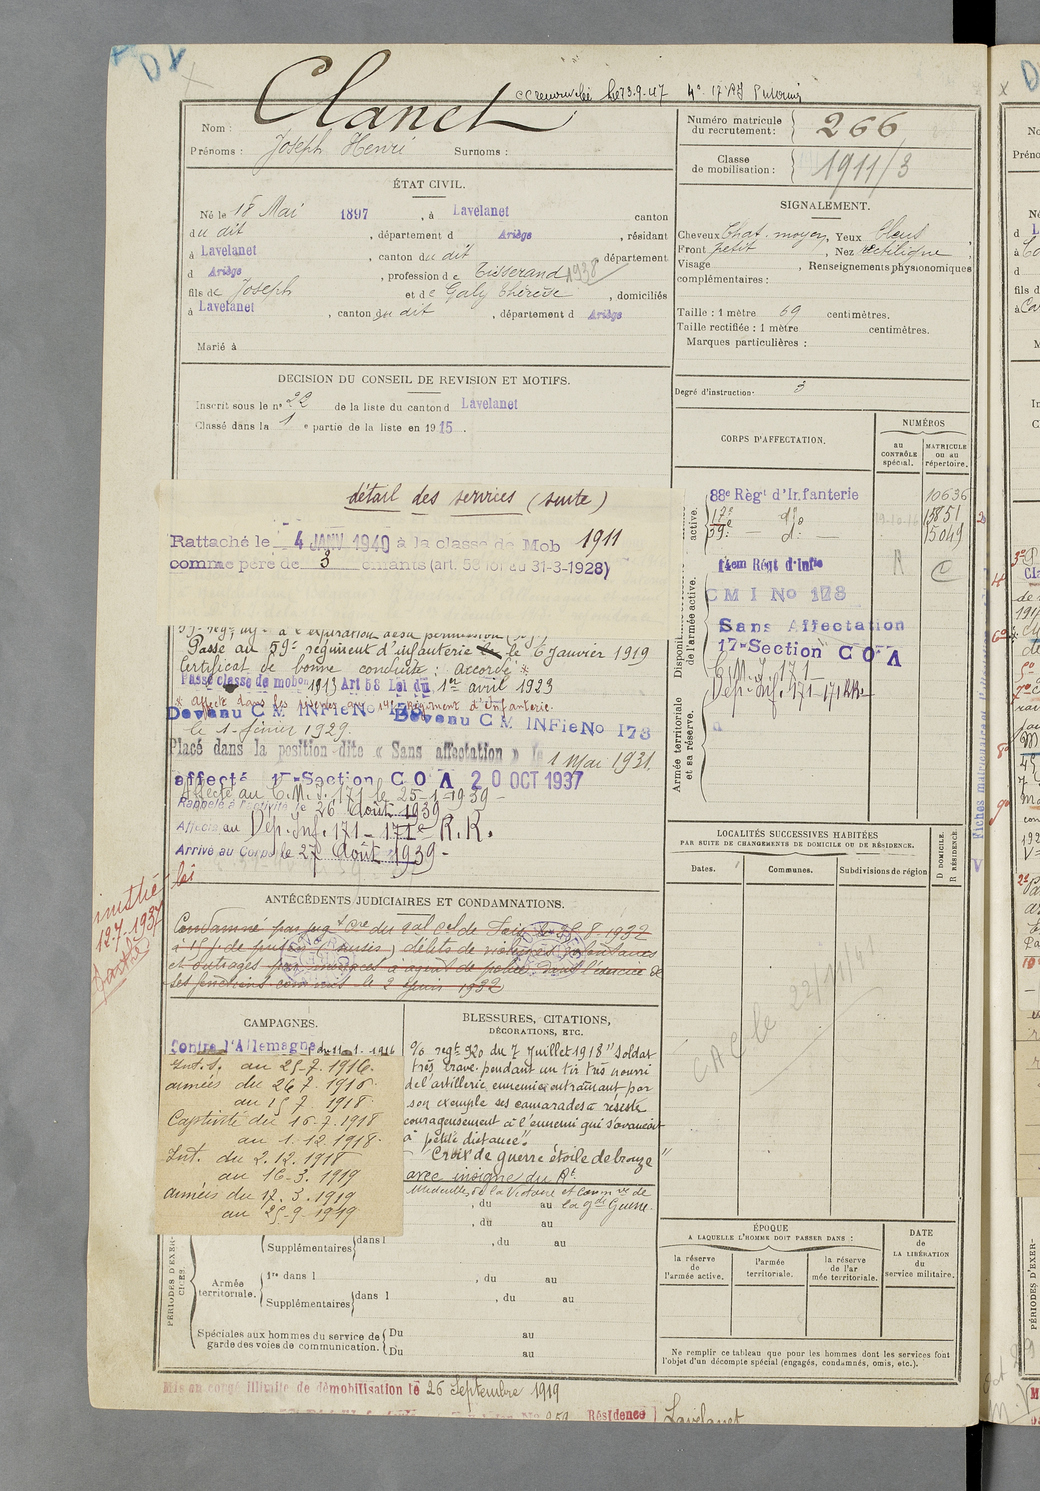 Clanet
Nom :
Prénoms : Joseph Henri Surnoms :
Numéro matricule
du recrutement : 266
Classe
de mobilisation : 1911/3
ÉTAT CIVIL.
Né le 18 Mai 1897, à Lavelanet canton
du dit, département d Ariège, résidant
à Lavelanet, canton du dit, département
d Ariège, profession de Tisserand 1938
fils de Joseph et de Galy Thérèse, domiciliés
à Lavelanet, canton du dit, département d Ariège
Marié à
SIGNALEMENT.
Cheveux Chat. moyen, Yeux bleus
Front petit, Nez rectiligne
Visage , Renseignements physionomiques
complémentaires :
Taille : 1 mètre 69 centimètres.
Taille rectifiée : 1 mètre centimètres.
Marques particulières :
Degré d'instruction : 3
DECISION DU CONSEIL DE REVISION ET MOTIFS.
Inscrit sous le n° 22 de la liste du canton d Lavelanet
Classé dans la 1e partie de la liste en 1915.
détail des services (suite)
Rattaché le 4 JANV 1940 à la classe de Mob 1911
comme père de 3 enfants (art. 58 loi du 31-3-1928)
Passé au 59e régiment d'infanterie le 6 Janvier 1919
Certificat de bonne conduite : accordé *
Passé classe de mobon 1913 Art 58 Loi du 1er avril 1923
* affecté dans les réserves au 14e Régiment d'Infanterie.
Devenu C M INFie No Devenu C M INFie No 178
le 1 février 1929.
Placé dans la position dite « Sans affectation » le 1 mai 1931.
affecté 17e Section C O A 20 OCT 1937
Affecté au C.M.I. 171 le 25-1-1939-
Rappelé à l'activité le 26 Août 1939
Affecté au Dép. Inf. 171 - 171e R.R.
Arrivé au Corps le 27 Août 1939-
CORPS D'AFFECTATION.
NUMÉROS
au
CONTRÔLE
spécial.
MATRICULE
ou au
répertoire.
active.
Disponi
de l'armée active.
Armée territoriale
et sa réserve.
88e Régt d'Infanterie 10636
17e do 15851
59e - do - 15049
14em Régt d'Infie R
C M I No 178
Sans Affectation
17e Section C O A
C.M.I. 171
Dép. Inf. 171 - 171 RR-
LOCALITÉS SUCCESSIVES HABITÉES
PAR SUITE DE CHANGEMENTS DE DOMICILE OU DE RÉSIDENCE.
Dates. Communes. Subdivisions de région
D DOMICILE.
R RÉSIDENCE.
CAC le 22/11/41
loi
12.7.1937
ANTÉCÉDENTS JUDICIAIRES ET CONDAMNATIONS.
Condamné par jugt Cre du gal cel de Foix le 25-8-1932
à 15 f de prison (sursis) délits de violences volontaires
et outrages par menaces à agent de police dans l'exercice de
ses fonctions commis le 2 Juin 1932
CAMPAGNES.
Contre l'Allemagne du 11-1-1916
Int.S. au 25-7-1916.
armées du 26 7 1916
au 15 7 1918
Captivité du 16-7-1918
au 1.12.1918.
Int. du 2.12.1918
au 16-3.1919
armées du 17.3.1919
au 25-9-1919
BLESSURES, CITATIONS,
DÉCORATIONS, ETC.
o/o régt 920 du 7 Juillet 1918 "Soldat
très brave pendant un tir très nourri
de l'artillerie ennemie entraînant par
son exemple ses camarades a résisté
courageusement à l'ennemi qui s'avançait
à petite distance".
Croix de guerre étoile de bronze
avec insigne du Rt
Médailles de la Victoire et Comm ve de
, du au la gde Guerre.
, du au
Supplémentaires dans l , du au
PÉRIODES D'EXER-
CICES.
Armée
territoriale.
1re dans l , du au
Supplémentaires dans l , du au
Spéciales aux hommes du service de
garde des voies de communication.
Du au
Du au
ÉPOQUE
A LAQUELLE L'HOMME DOIT PASSER DANS :
la réserve
de
l'armée active.
l'armée
territoriale.
la réserve
de l'ar
mée territoriale.
DATE
de
LA LIBÉRATION
du
service militaire.
Ne remplir ce tableau que pour les hommes dont les services font
l'objet d'un décompte spécial (engagés, condamnés, omis, etc.).
Mis en congé illimité de démobilisation le 26 Septembre 1919
Résidence Lavelanet